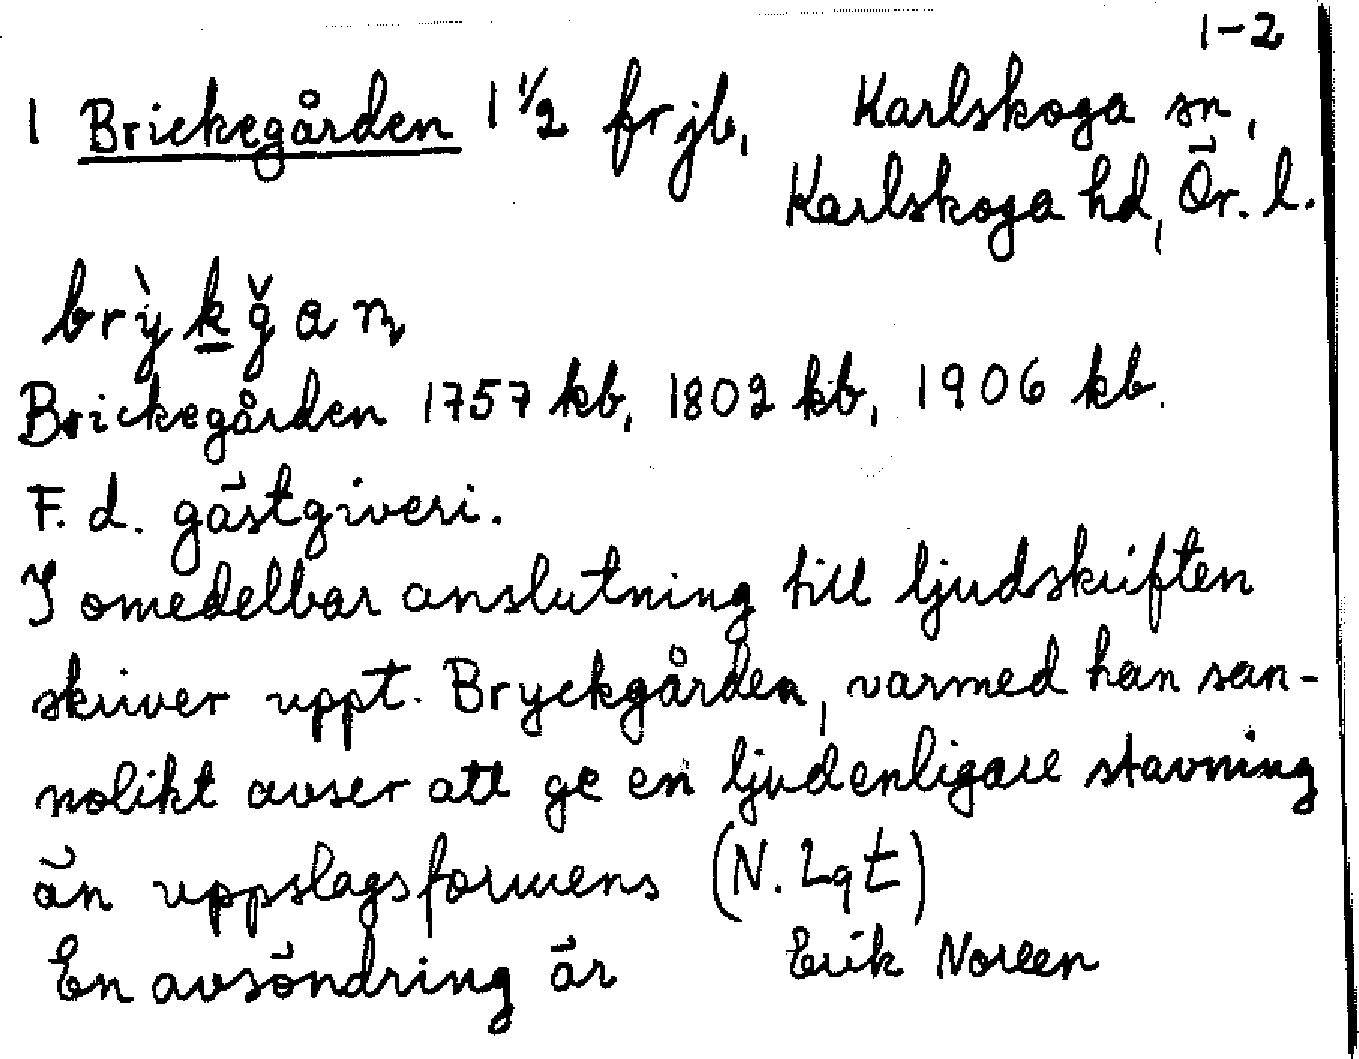 1-2
1 Brickegården 1 1/2 fr jb, Karlskoga sn,
Karlskoga hd, Ör. l.
Brickegården 1757 kb, 1802 kb, 1906 kb.
F. d. gästgiveri.
I omedelbar anslutning till ljudskriften
skriver uppt. Bryckgården, varmed han san-
nolikt avser att ge en ljudenligare stavning
än uppslagsformens (N. Lqt)
En avsöndring är Erik Noreen